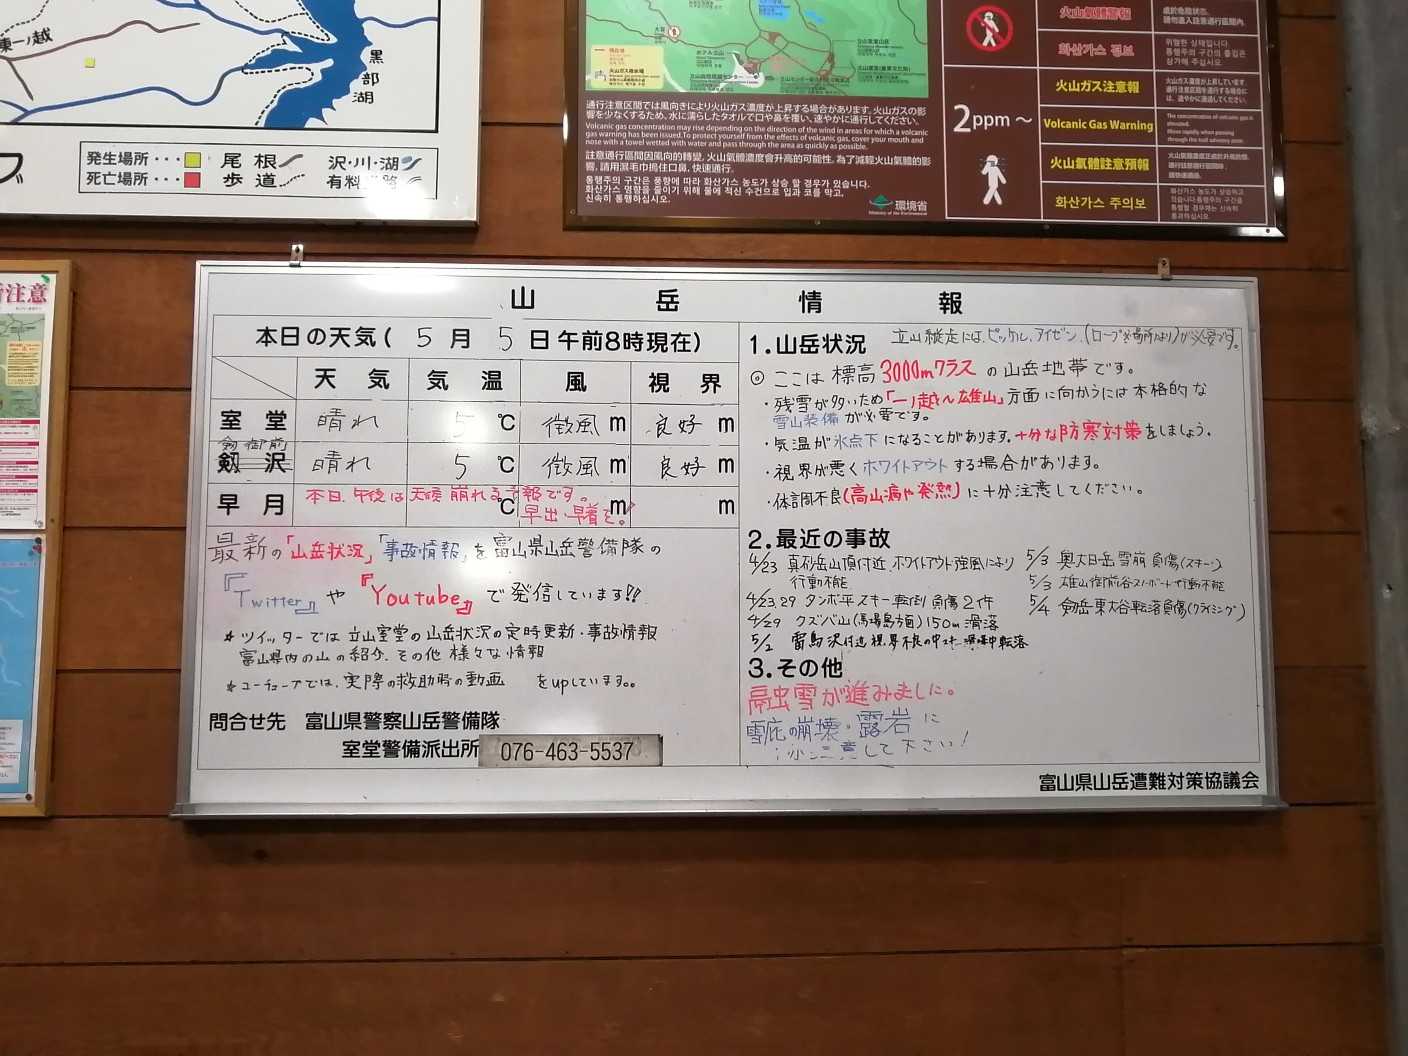 東一ノ越
黒部湖
発生場所・・・ 尾根 沢・川・湖
死亡場所・・・ 歩道 有料道路
通行注意区間では風向きにより火山ガス濃度が上昇する場合があります。火山ガスの影
響を少なくするため、水に濡らしたタオルで口や鼻を覆い、速やかに通行してください。
Volcanic gas concentration may rise depending on the direction of the wind in areas for which a volcanic
gas warning has been issued. To protect yourself from the effects of volcanic gas, cover your mouth and
nose with a towel wetted with water and pass through the area as quickly as possible.
註意通行區間因風向的轉變，火山氣體濃度會升高的可能性。為了減輕火山氣體的影
響，請用濕毛巾捂住口鼻，快速通行。
통행주의 구간은 풍향에 따라 화산가스 농도가 상승 할 경우가 있습니다.
화산가스 영향을 줄이기 위해 물에 적신 수건으로 입과 코를 막고,
신속히 통행하십시오.
環境省
Ministry of the Environment
火山氣體警報
화산가스 경보
2ppm～
火山ガス注意報
Volcanic Gas Warning
火山氣體註意預報
화산가스 주의보
注意
山岳情報
本日の天気( 5月 5日午前8時現在)
天気 気温 風 視界
室堂 晴れ 5℃ 微風m 良好m
剱御前
剱沢 晴れ 5℃ 微風m 良好m
早月 ℃ m m
本日、午後は天候崩れる予報です。
早出・早着を!
最新の「山岳状況」「事故情報」を富山県山岳警備隊の
『Twitter』や『Youtube』で発信しています!!
＊ツイッターでは立山室堂の山岳状況の定時更新・事故情報
富山県内の山の紹介、その他様々な情報
＊ユーチューブでは、実際の救助時の動画 をupしています。。
問合せ先 富山県警察山岳警備隊
室堂警備派出所 076-463-5537
1.山岳状況 立山縦走には、ピッケル、アイゼン、(ロープ※場所により)が必要です。
◎ここは標高3000mクラスの山岳地帯です。
・残雪が多いため「一ノ越〜雄山」方面に向かうには本格的な
雪山装備が必要です。
・気温が氷点下になることがあります。十分な防寒対策をしましょう。
・視界が悪くホワイトアウトする場合があります。
・体調不良(高山病や発熱)に十分注意してください。
2.最近の事故
4/23 真砂岳山頂付近、ホワイトアウト強風により
行動不能
4/23,29 タンボ平スキー転倒負傷2件
4/29 クズバ山(馬場島方面)150m滑落
5/2 雷鳥沢付近視界不良の中スキー滑降中転落
5/3 奥大日岳雪崩負傷(スキー)
5/3 雄山御前谷スノーボード行動不能
5/4 剱岳東大谷転落負傷(クライミング)
3.その他
融雪が進みました。
雪庇の崩壊・露岩に
注意して下さい!
富山県山岳遭難対策協議会